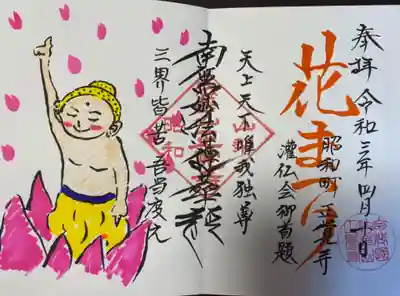 奉拝 令和三年四月十日
昭和町 正覚寺
花まつり
灌仏会御首題
天上天下唯我独尊
南無妙法蓮華経
昭和
三界皆苦吾当度之